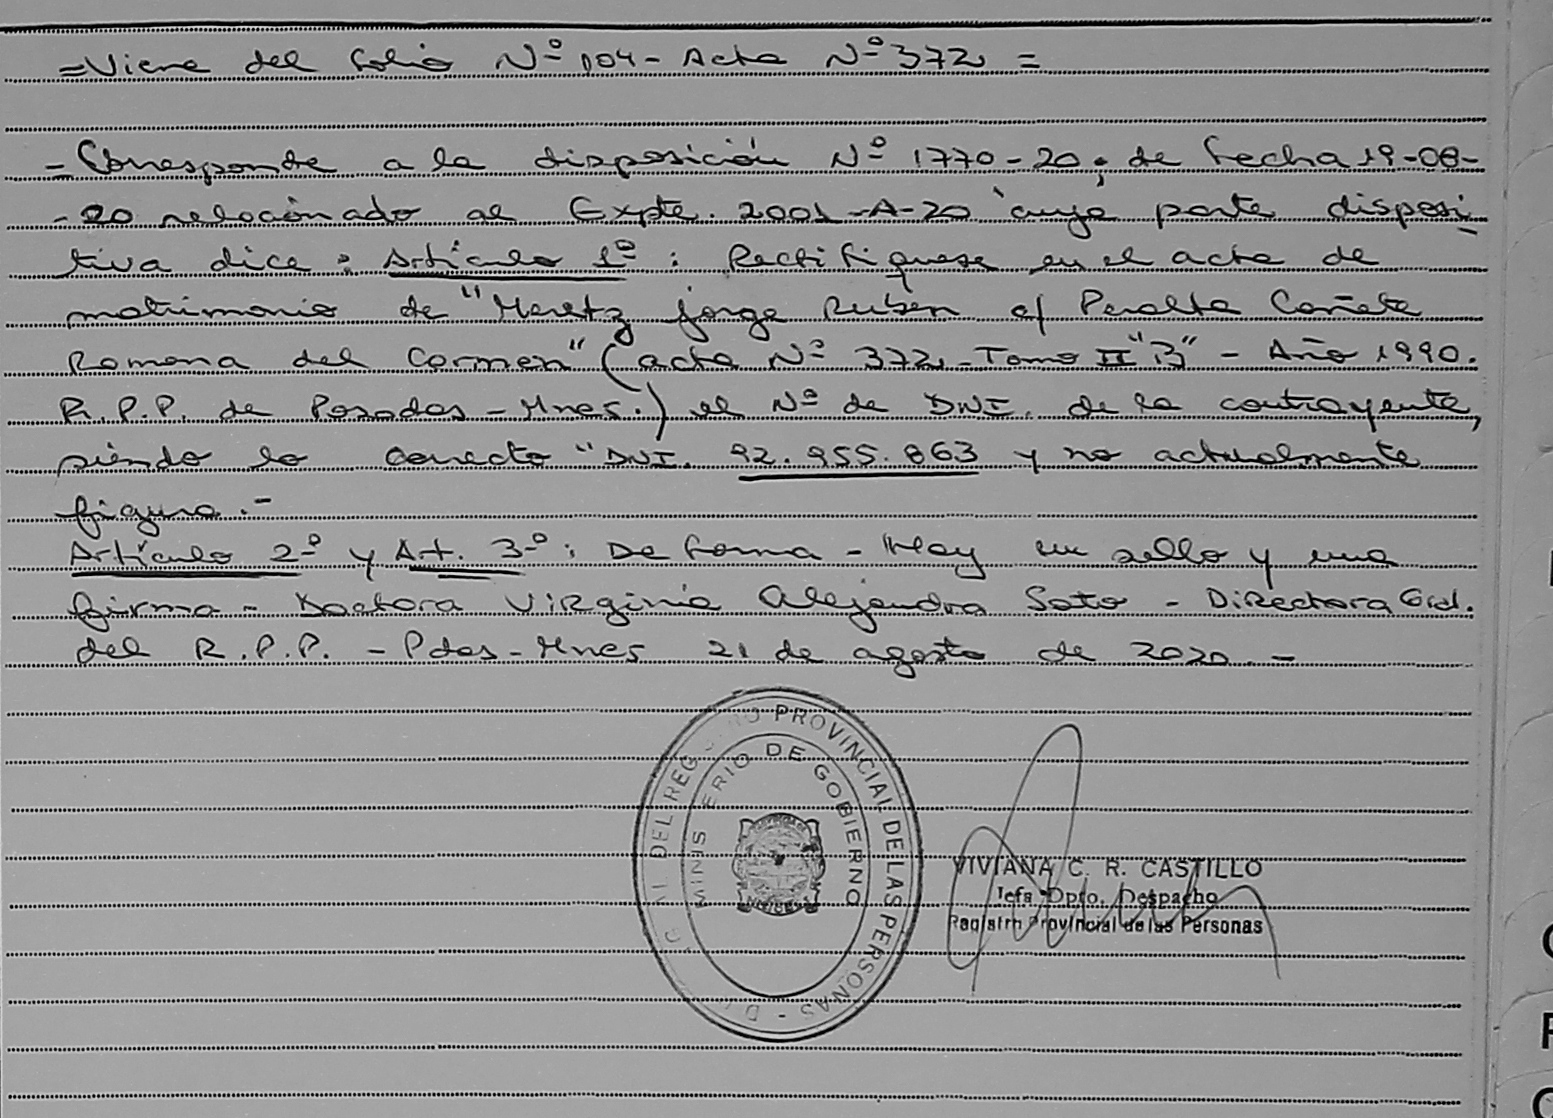 =Viene del folio Nº 104 - Acta Nº 372 =
- Corresponde a la disposición Nº 1770-20; de fecha 19-08-
-20 relacionado al Expte. 2001-A-20 cuya parte disposi
tiva dice: Artículo 1º: Rectifiquese en el acta de
matrimonio de "Meretz Jorge Ruben c/ Peralta Cañete
Romona del Carmen" (acta Nº 372 - Tomo II "B" - Año 1990.
R.P.P. de Posadas - Mnes.) el Nº de DNI. de la contrayente,
siendo lo correcto "DNI. 92.955.863 y no actualmente
figura.-
Artículo 2º y Art. 3º: De forma - Hay un sello y una
firma - Doctora Virginia Alejandra Soto - Directora Gral.
del R.P.P. - Pdas - Mnes 21 de agosto de 2020.-
REGISTRO PROVINCIAL DE LAS PERSONAS
MINISTERIO DE GOBIERNO
VIVIANA C. R. CASTILLO
Jefa Dpto. Despacho
Registro Provincial de las Personas